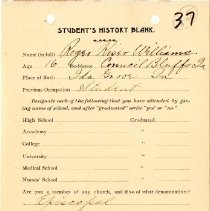 37
STUDENT'S HISTORY BLANK.
Name (in full) Roger Williams
Age 16 Residence Council Bluffs Ia
Place of Birth Ida Grove Ia
Previous Occupation Student
Designate each of the following that you have attended by giving name of school, and after "graduated" write "yes" or "no"
High School Graduated
Academy "
College "
University "
Medical School "
Nurses' School "
Are you a member of any church, and if so of what denomination?
Episcopal